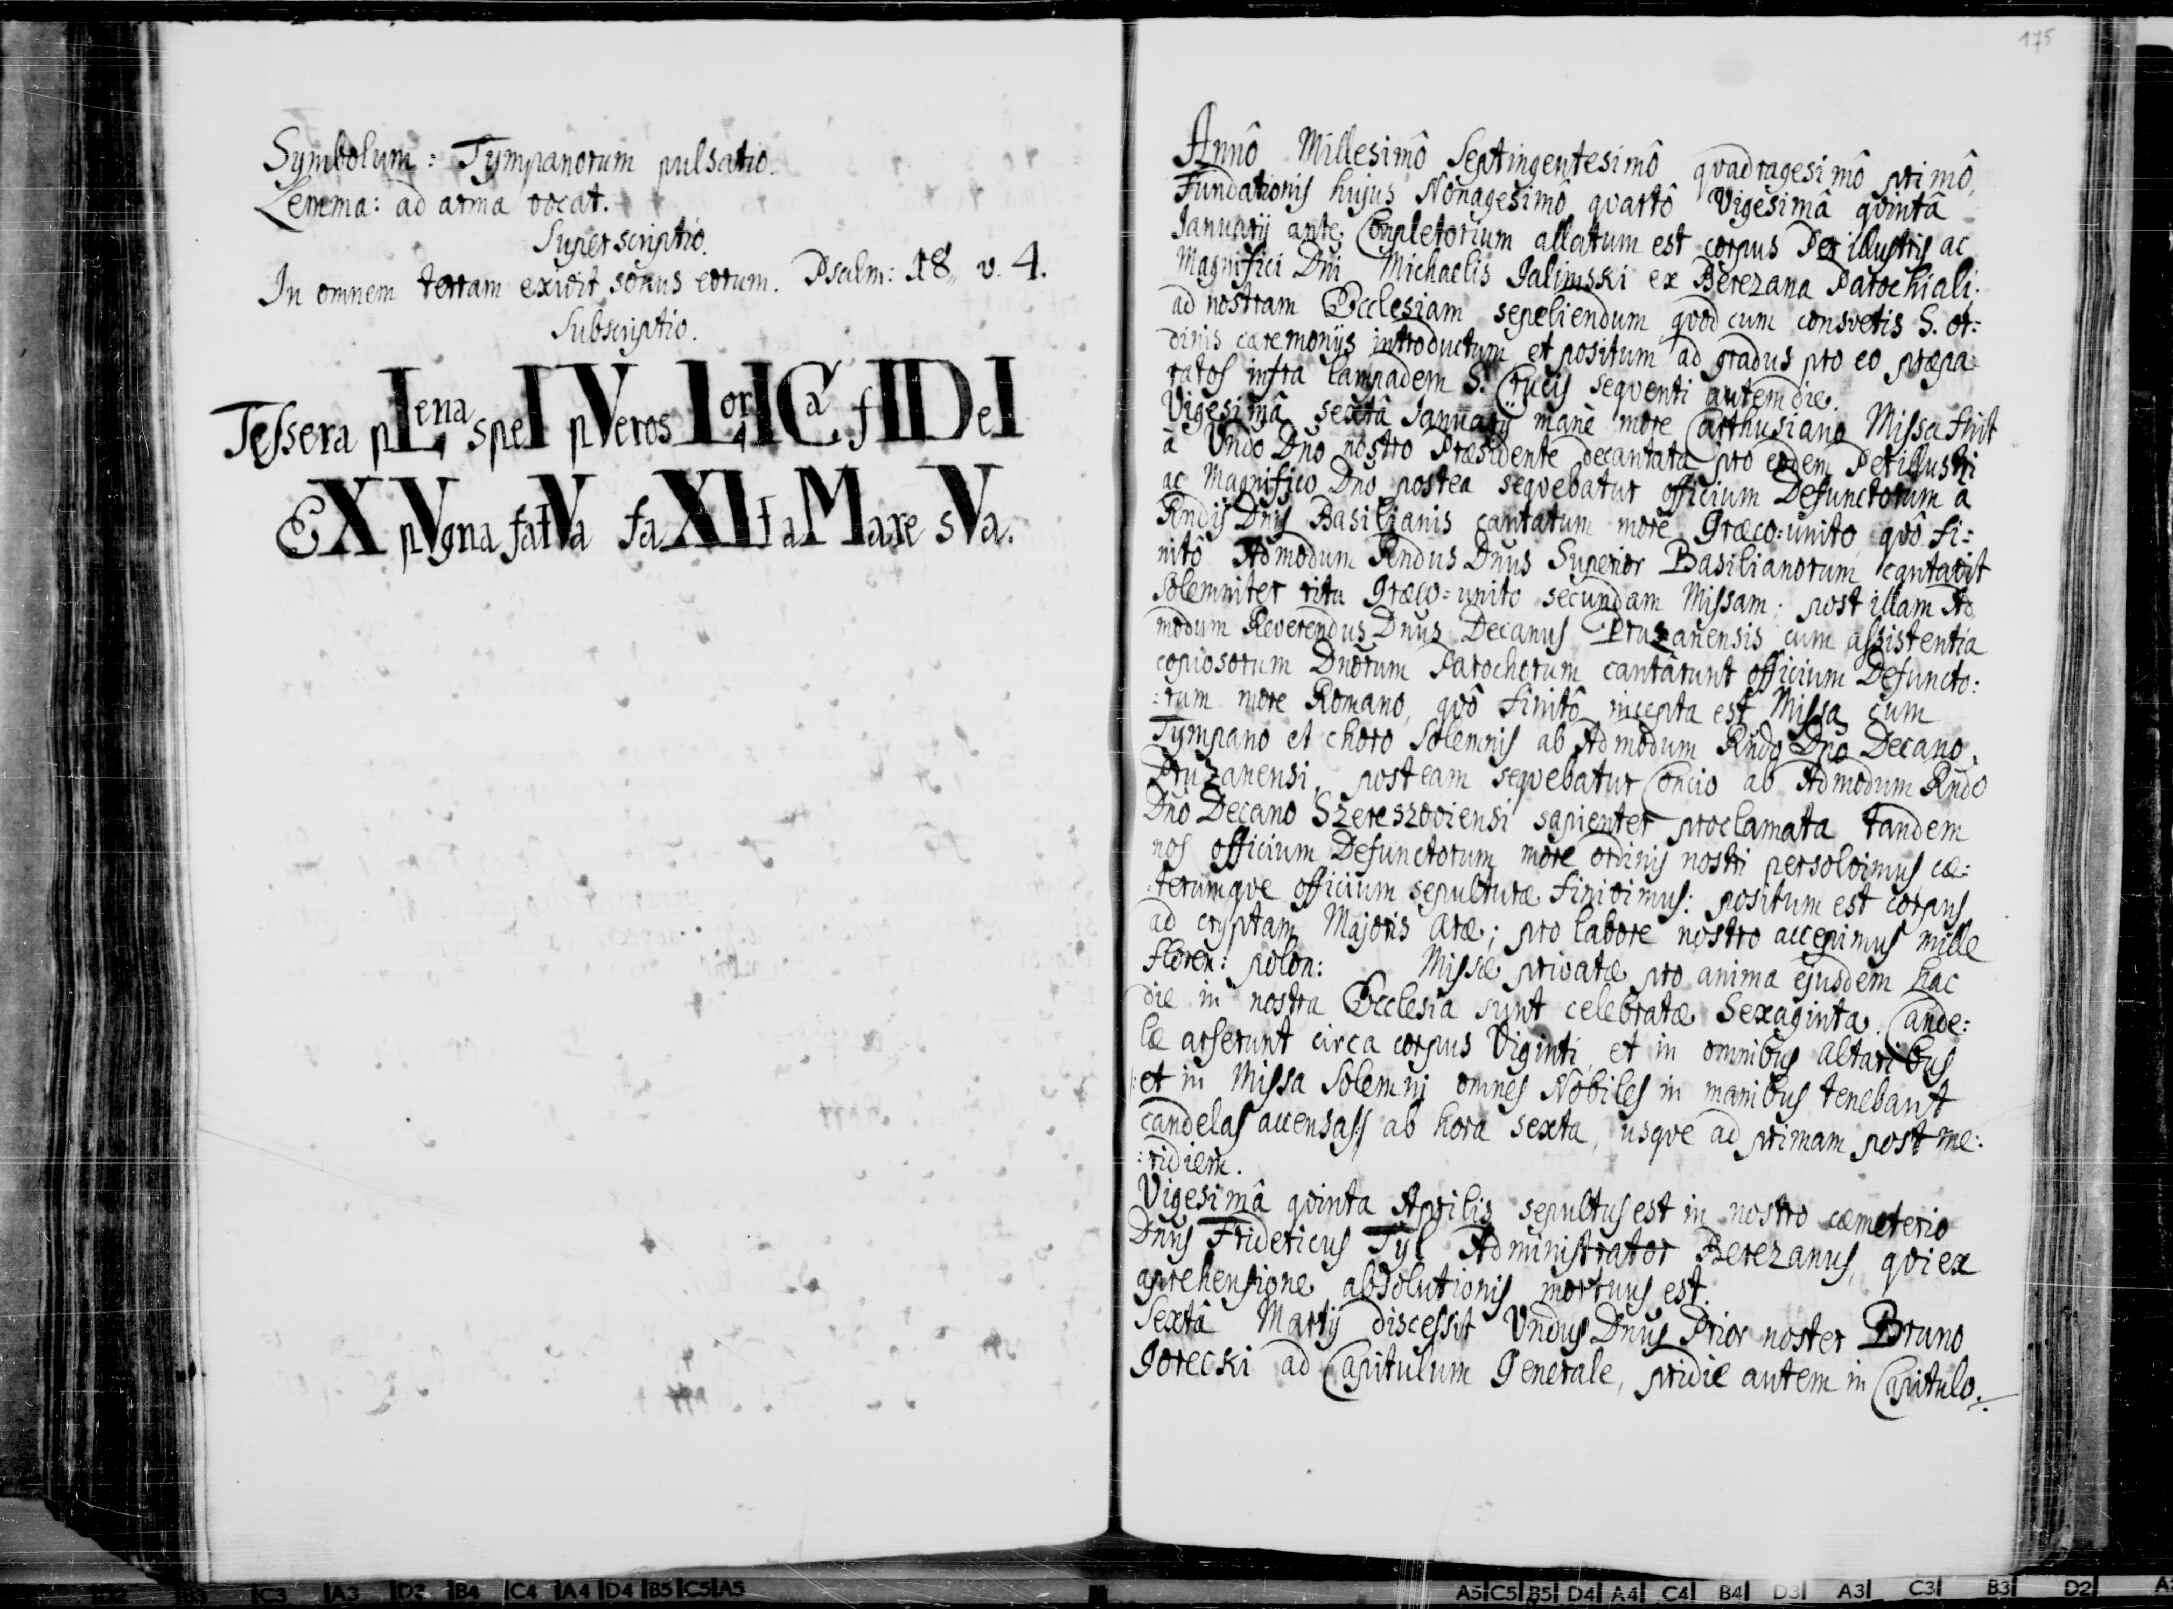 Symbolum: Tympanorum pulsatio.
Lemma: ad arma vocat.
Superscriptio.
In omnem terram exivit sonus eorum. Psalm: 18, v. 4.
Subscriptio.
Tessera pLena speI pVeros LorICa fIDeI
EX pVgna fatVa faXIt aMare sVa.
175
Annô Millesimô Septingentesimô quadragesimô primô,
Fundationis hujus Nonagesimô quartô Vigesimâ quintâ
Januarij ante Completorium allatum est corpus Perillustris ac
Magnifici Dni Michaelis Jalinski ex Berezana Parochiali
ad nostram Ecclesiam sepeliendum quod cum consvetis S. or:
dinis caeremonijs introductum et positum ad gradus pro eo præpa
ratos infra lampadem S. Crucis sequenti autem die.
Vigesimâ sextâ Januarij manè more Carthusiano Missa fuit
à Vndo Dno nostro Præsidente decantata pro eodem Perillustri
ac Magnifico Dno postea sequebatur officium Defunctorum à
Rndis Dnis Basilianis cantatum more Græco:unito, quô fi:
nitô Admodum Rndus Dnus Superior Basilianorum cantavit
solemniter ritu Græco=unito secundam Missam; post illam Ad
modum Reverendus Dnus Decanus Pruzanensis cum assistentia
copiosorum Dnorum Parochorum cantârunt officium Defuncto:
:rum more Romano, quô finitô incepta est Missa cum
Tympano et choro Solemnis ab Admodum Rndo Dno Decano
Pruzanensi, posteam sequebatur Concio ab Admodum Rndo
Dno Decano Szereszoviensi sapienter proclamata tandem
nos officium Defunctorum more ordinis nostri persolvimus cæ:
:terumque officium sepulturæ finivimus: positum est corpus
ad cryptam Majoris Aræ; pro labore nostro accepimus mille
floren: polon: Missæ privatæ pro anima ejusdem hac
die in nostra Ecclesia sunt celebratæ Sexaginta. Cande:
læ arserunt circa corpus Viginti, et in omnibus Altaribus
:et in Missa Solemni omnes Nobiles in manibus tenebant
candelas accensas:/ ab hora sexta, usque ad primam post me:
:ridiem.
Vigesimâ quinta Aprilis sepultus est in nostro cæmeterio
Dnus Fridericus Tyl Administrator Berezanus, qui ex
aprehensione absolutionis mortuus est.
Sextâ Martij discessit Vndus Dnus Prior noster Bruno
Gorecki ad Capitulum Generale, pridie autem in Capitulo.